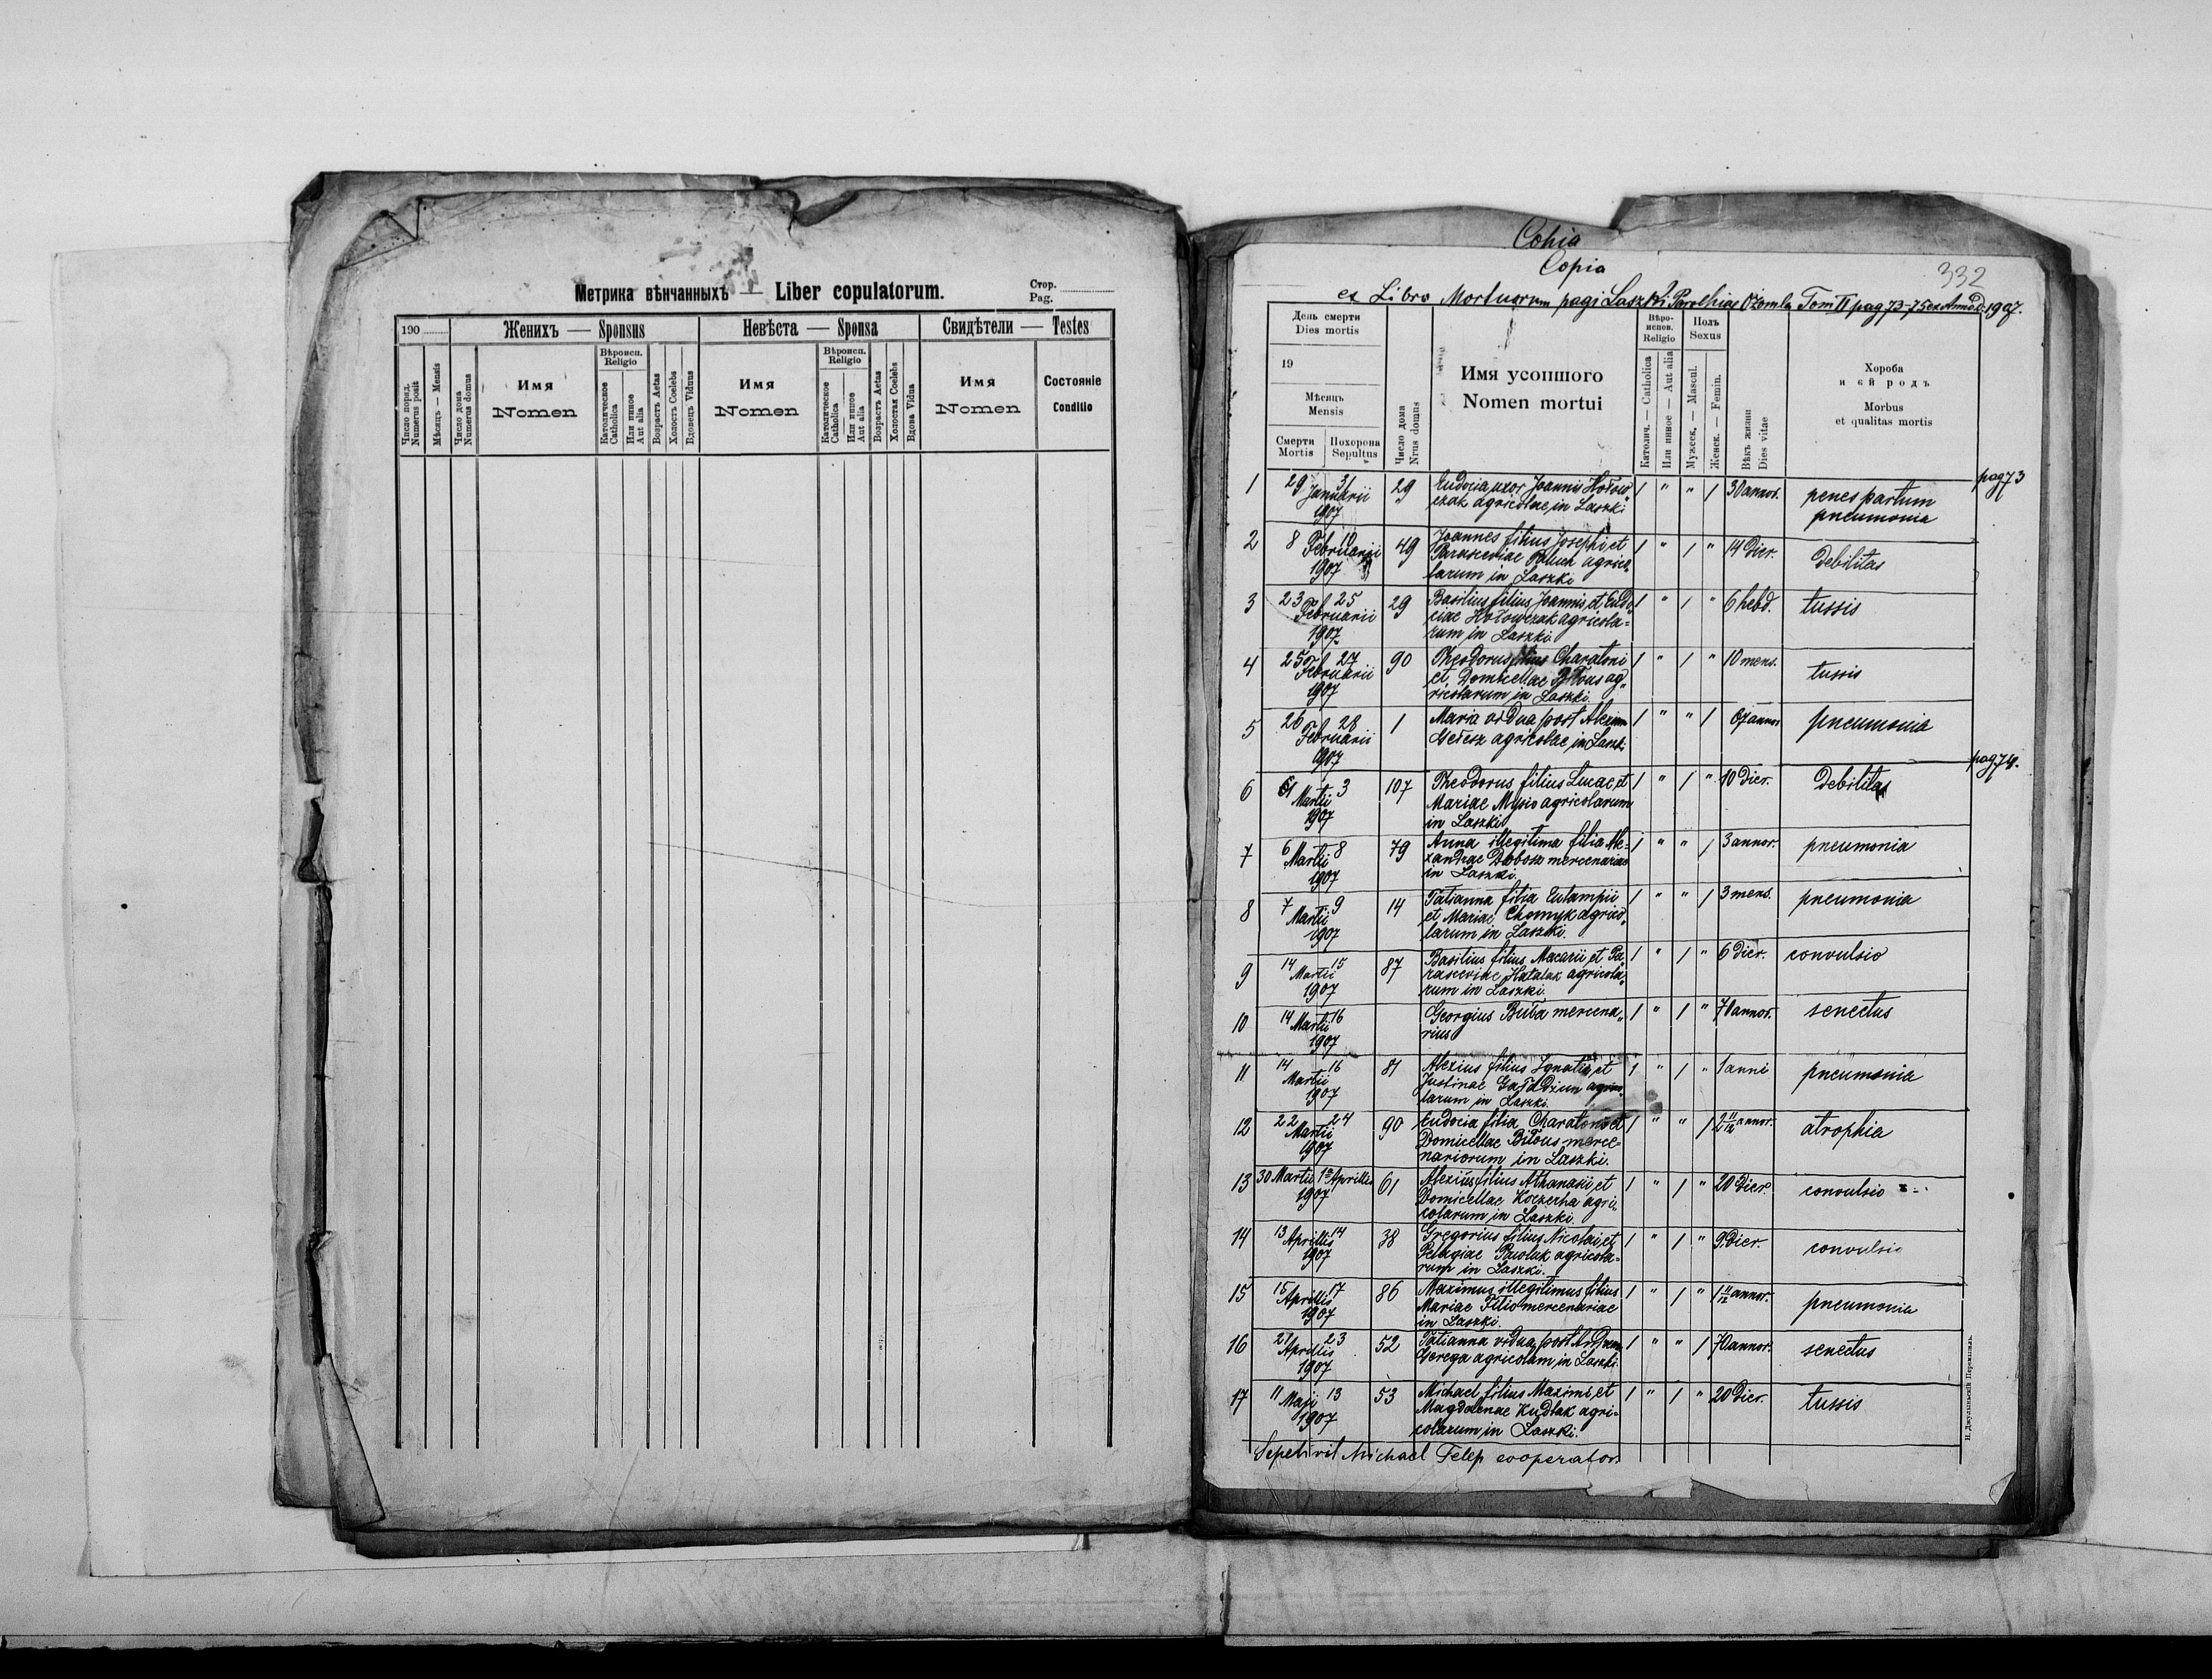 Метрика вѣнчанныхъ — Liber copulatorum.
Стор.
Pag.
190
Женихъ — Sponsus
Невѣста — Sponsa
Свидѣтели — Testes
Число поряд.
Numerus posit
Мѣсяцъ — Mensis
Число дома
Numerus domus
Имя
Nomen
Вѣроисп.
Religio
Католическое
Catholica
Или инное
Aut alia
Возрастъ Aetas
Холостъ Coelebs
Вдовецъ Viduus
Имя
Nomen
Вѣроисп.
Religio
Католическое
Catholica
Или инное
Aut alia
Возрастъ Aetas
Холостая Coelebs
Вдова Vidua
Имя
Nomen
Состояніе
Conditio
Copia
Copia
332
ex Libro Mortuorum pagi Laszki Parochiae Ożomla Tom II pag 73-75 ex Anno D. 1907.
День смерти
Dies mortis
19
Мѣсяць
Mensis
Смерти
Mortis
Похорона
Sepultus
Число дома
Nrus domus
Имя усопшого
Nomen mortui
Вѣро-
испов.
Religio
Католич. — Catholica
Или инное — Aut alia
Полъ
Sexus
Мужеск. — Mascul.
Женск. — Femin.
Вѣкъ жизни
Dies vitae
Хороба
и єй родъ
Morbus
et qualitas mortis
pag 73
1 29 31 Januarii 1907 29 Eudocia uxor Joannis Hołow-
czak agricolae in Laszki 1 " " 1 30 annor. penes partum
pneumonia
2 8 10 Februarii 1907 49 Joannes filius Josephi et
Parasceviae Paluch agrico-
larum in Laszki 1 " 1 " 14 dier. Debilitas
3 23 25 Februarii 1907 29 Basilius filius Joannis et Eudo-
ciae Hołowczak agricola=
rum in Laszki 1 " 1 " 6 hebd. tussis
4 25 27 Februarii 1907 90 Theodorus filius Charatoni
et Domicellae Biłous ag-
ricolarum in Laszki. 1 " 1 " 10 mens. tussis
5 26 28 Februarii 1907 1 Maria vidua post Alexium
agricolae in Laszki 1 " " 1 67 annor pneumonia
pag. 74.
6 1 3 Martii 1907 107 Theodorus filius Lucae et
Mariae Mysio agricolarum
in Laszki 1 " 1 " 10 dier. Debilitas
7 6 8 Martii 1907 79 Anna illegitima filia Ale=
xandrae Dobosz mercenariae
in Laszki. 1 " " 1 3 annor. pneumonia
8 7 9 Martii 1907 14 Tatianna filia Eulampii
et Mariae Chomyk agrico-
larum in Laszki. 1 " " 1 3 mens. pneumonia
9 14 15 Martii 1907 87 Basilius filius Macarii et Pa-
rasceviae Hatalak agricola-
rum in Laszki. 1 " 1 " 6 dier. convulsio
10 14 16 Martii 1907 Georgius Buła mercena-
rius 1 " 1 " 70 annor. senectus
11 14 16 Martii 1907 81 Alexius filius Ignatii et
Justinae Gałdziun agrico-
larum in Laszki. 1 " 1 " 1 anni pneumonia
12 22 24 Martii 1907 90 Eudocia filia Charatoni et
Domicellae Biłous merce=
nariorum in Laszki. 1 " " 1 2 11/12 annor. atrophia
13 30 Martii 1 Aprilis 1907 61 Alexius filius Athanasii et
Domicellae Koczerha agri-
colarum in Laszki. 1 " 1 " 20 dier. convulsio
14 13 14 Aprilis 1907 38 Gregorius filius Nicolai et
Pelagiae Pawluk agricola=
rum in Laszki. 1 " 1 " 9 dier. convulsio
15 15 17 Aprilis 1907 86 Maximus illegitimus filius
Mariae Filio mercenariae
in Laszki. 1 " 1 " 1 11/12 annor. pneumonia
16 21 23 Aprilis 1907 52 Tatianna vidua post Andream
Gerega agricolam in Laszki. 1 " " 1 70 annor. senectus
17 11 13 Maji 1907 53 Michael filius Maximi et
Magdalenae Kudłak agri=
colarum in Laszki. 1 " 1 " 20 dier. tussis
Sepelivit Michael Telep cooperator.
Н. Джулыньскій Перемышль.